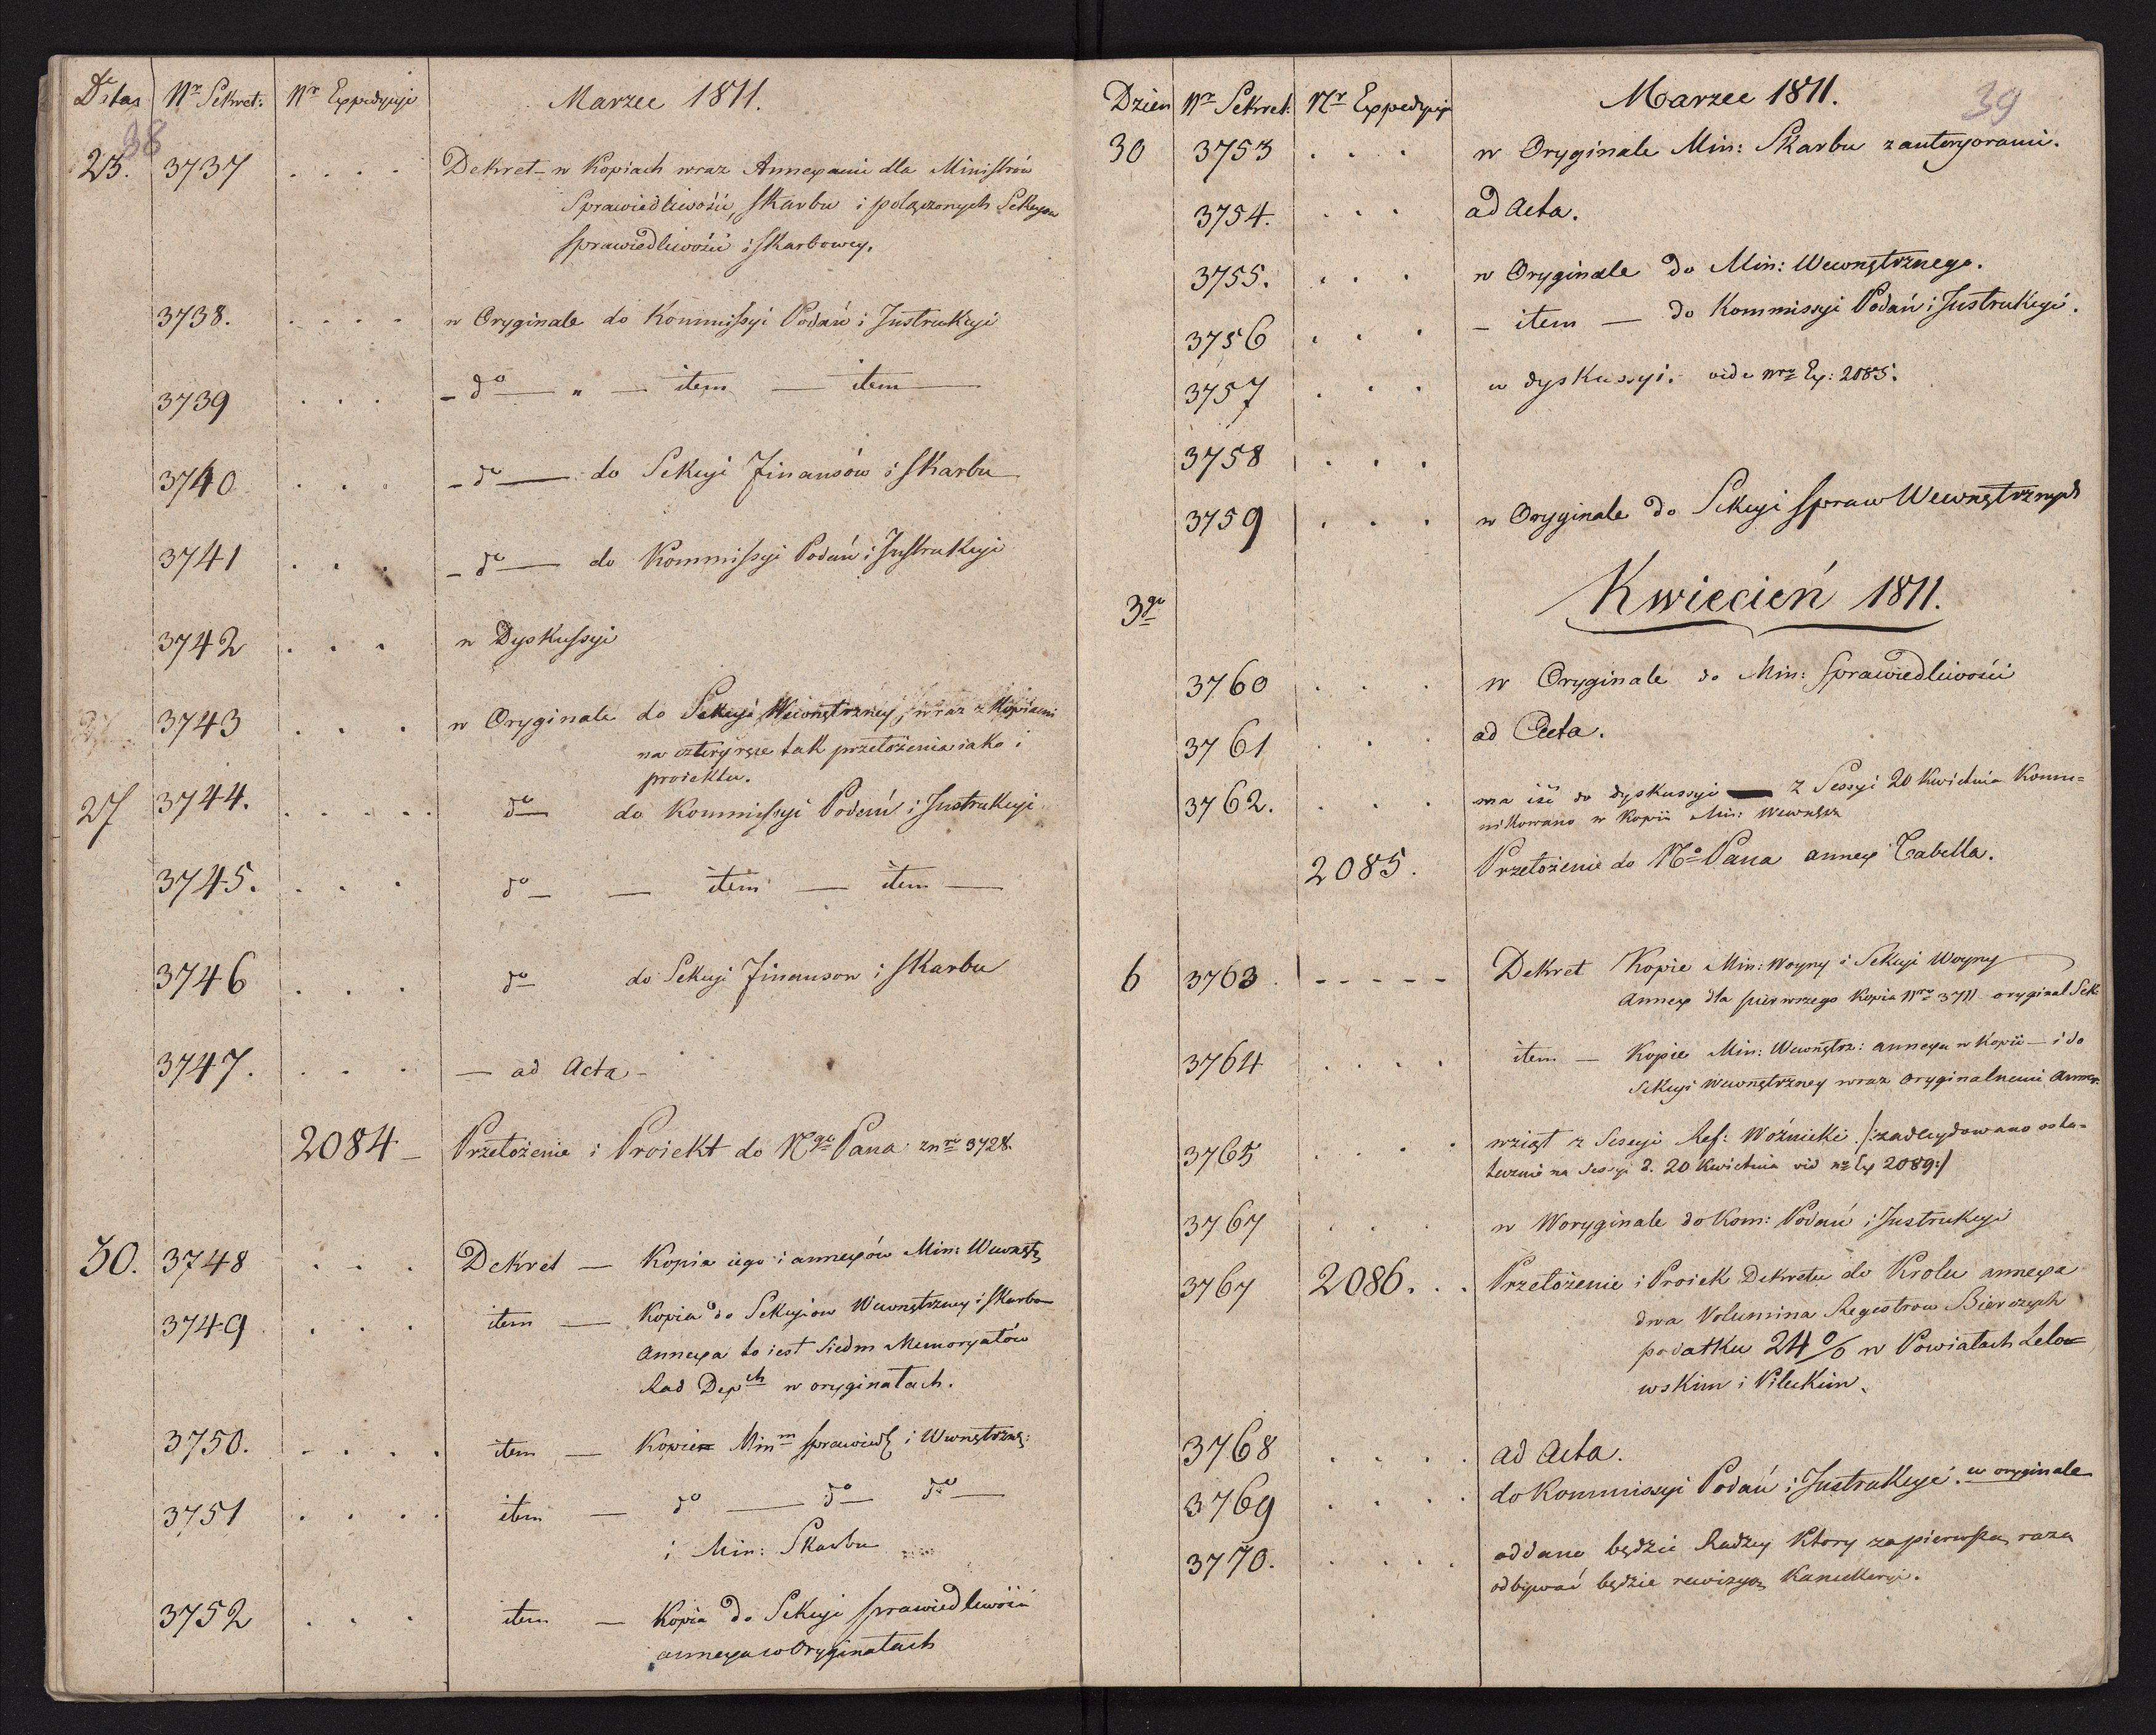 Datas Nr Sekret: Nr Expedycyi Marzec 1811.
38
23. 3737 . . . . Dekret w Kopiach wraz Annexami dla Ministrów
Sprawiedliwości, Skarbu i połączonych Sekcyów
Sprawiedliwości i Skarbowey.
3738. . . . . w Oryginale do Kommissyi Podań i Instrukcyi
3739 . . . - do — " — item — item —
3740 . . . - do — do Sekcyi Finansów i Skarbu
3741 . . . - do — do Kommissyi Podań i Instrukcyi
3742 . . . w Dyskussyi
3743 . . . w Oryginale do Sekcyi Wewnętrzney, wraz z Kopiami
na cztery ręce tak przełożenia iako i
proiektu.
27 3744. . . . . . do — do Kommissyi Podań i Instrukcyi
3745. . . . do — — item — item —
3746 . . . do — do Sekcyi Finansow i Skarbu
3747. . . . — ad Acta -
2084 — Przełożenie i Proiekt do Ngo Pana z nru 3728.
30. 3748 . . . Dekret — Kopia iego i annexów Min: Wewnętr
3749 . . . item — Kopia do Sekcyiow Wewnętrzney i Skarbo
Annexa to iest Siedm Memoryałów
Rad Depch w oryginałach.
3750. . . . . item — Kopie Minm Sprawiedl i Wewnętrzne:
3751 . . . . item — do — do — do —
i Min: Skarbu
3752 . . . item — Kopia do Sekcyi Sprawiedliwości
annexa w Oryginałach
Dzien Nr Sekret. Nr Expedycyi Marzec 1811. 39
30 3753 . . . w Oryginale Min: Skarbu z anteryorami.
3754. . . . ad Acta.
3755. . . . w Oryginale do Min: Wewnętrznego.
3756 . . . - item — do Kommissyi Podań i Instrukcyi.
3757 . . . w dyskussyi. - vide Nro Ex: 2085.
3758 . . .
3759 . . . w Oryginale do Sekcyi Spraw Wewnętrznych
3go Kwiecień 1811.
3760 . . . w Oryginale do Min: Sprawiedliwości
3761 . . . ad Acta.
3762. . . . ma iść do dyskussyi — Z Sessyi 20 Kwietnia Kommu=
nikowano w Kopii Min: Wewnętrz
2085. Przełożenie do No Pana annex Tabella.
6 3763. - - - - - Dekret Kopie Min: Woyny i Sekcyi Woyny
Annex dla pierwszego Kopia Nru 3711 - oryginal Sek:
3764 . . . . item — Kopie Min: Wewnętrz: annexa w Kopii — i do
Sekcyi Wewnętrzney wraz oryginalnemi Annex:
3765 . . . . wziął z Sessyi Ref: Woźnicki /:zadecydowano osta=
tecznie na Sessyi d. 20 Kwietnia vid nro Ex 2089:/
3767 . . . w Woryginale do Kom: Podań i Instrukcyi
3767 2086. . . Przełożenie i Proiek Dekretu do Krolu annexa
dwa Volumina Regestrow Bierczych
podatku 24 % w Powiatach Lelo=
wskim i Pileckim.
3768 . . . . ad Acta.
3769 . . . . do Kommissyi Podań i Instrukcyi. w oryginale
3770. . . . . oddane będzie Radzcy Ktory zapierwszą razą
odbywać będzie rewizyą Kancellaryi.